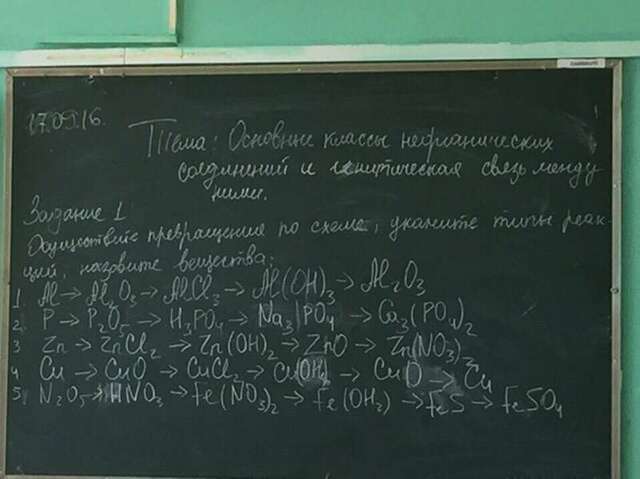 17.09.16.
Тема: Основные классы неорганических
соединений и генетическая связь между
ними.
Задание 1
Осуществите превращения по схеме, укажите типы реак-
ций, назовите вещества:
1 Al → Al₂O₃ → AlCl₃ → Al(OH)₃ → Al₂O₃
2. P → P₂O₅ → H₃PO₄ → Na₃PO₄ → Ca₃(PO₄)₂
3 Zn → ZnCl₂ → Zn(OH)₂ → ZnO → Zn(NO₃)₂
4 Cu → CuO → CuCl₂ → Cu(OH)₂ → CuO → Cu
5. N₂O₅ → HNO₃ → Fe(NO₃)₂ → Fe(OH₂) → FeS → FeSO₄